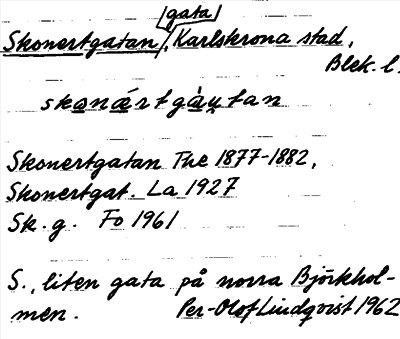 gata
Skonertgatan, Karlskrona stad,
Blek. l.
skonǽrtgàu̯tan
Skonertgatan The 1877-1882,
Skonertgat. La 1927
Sk. g. Fo 1961
S., liten gata på norra Björkhol-
men. Per-Olof Lindqvist 1962